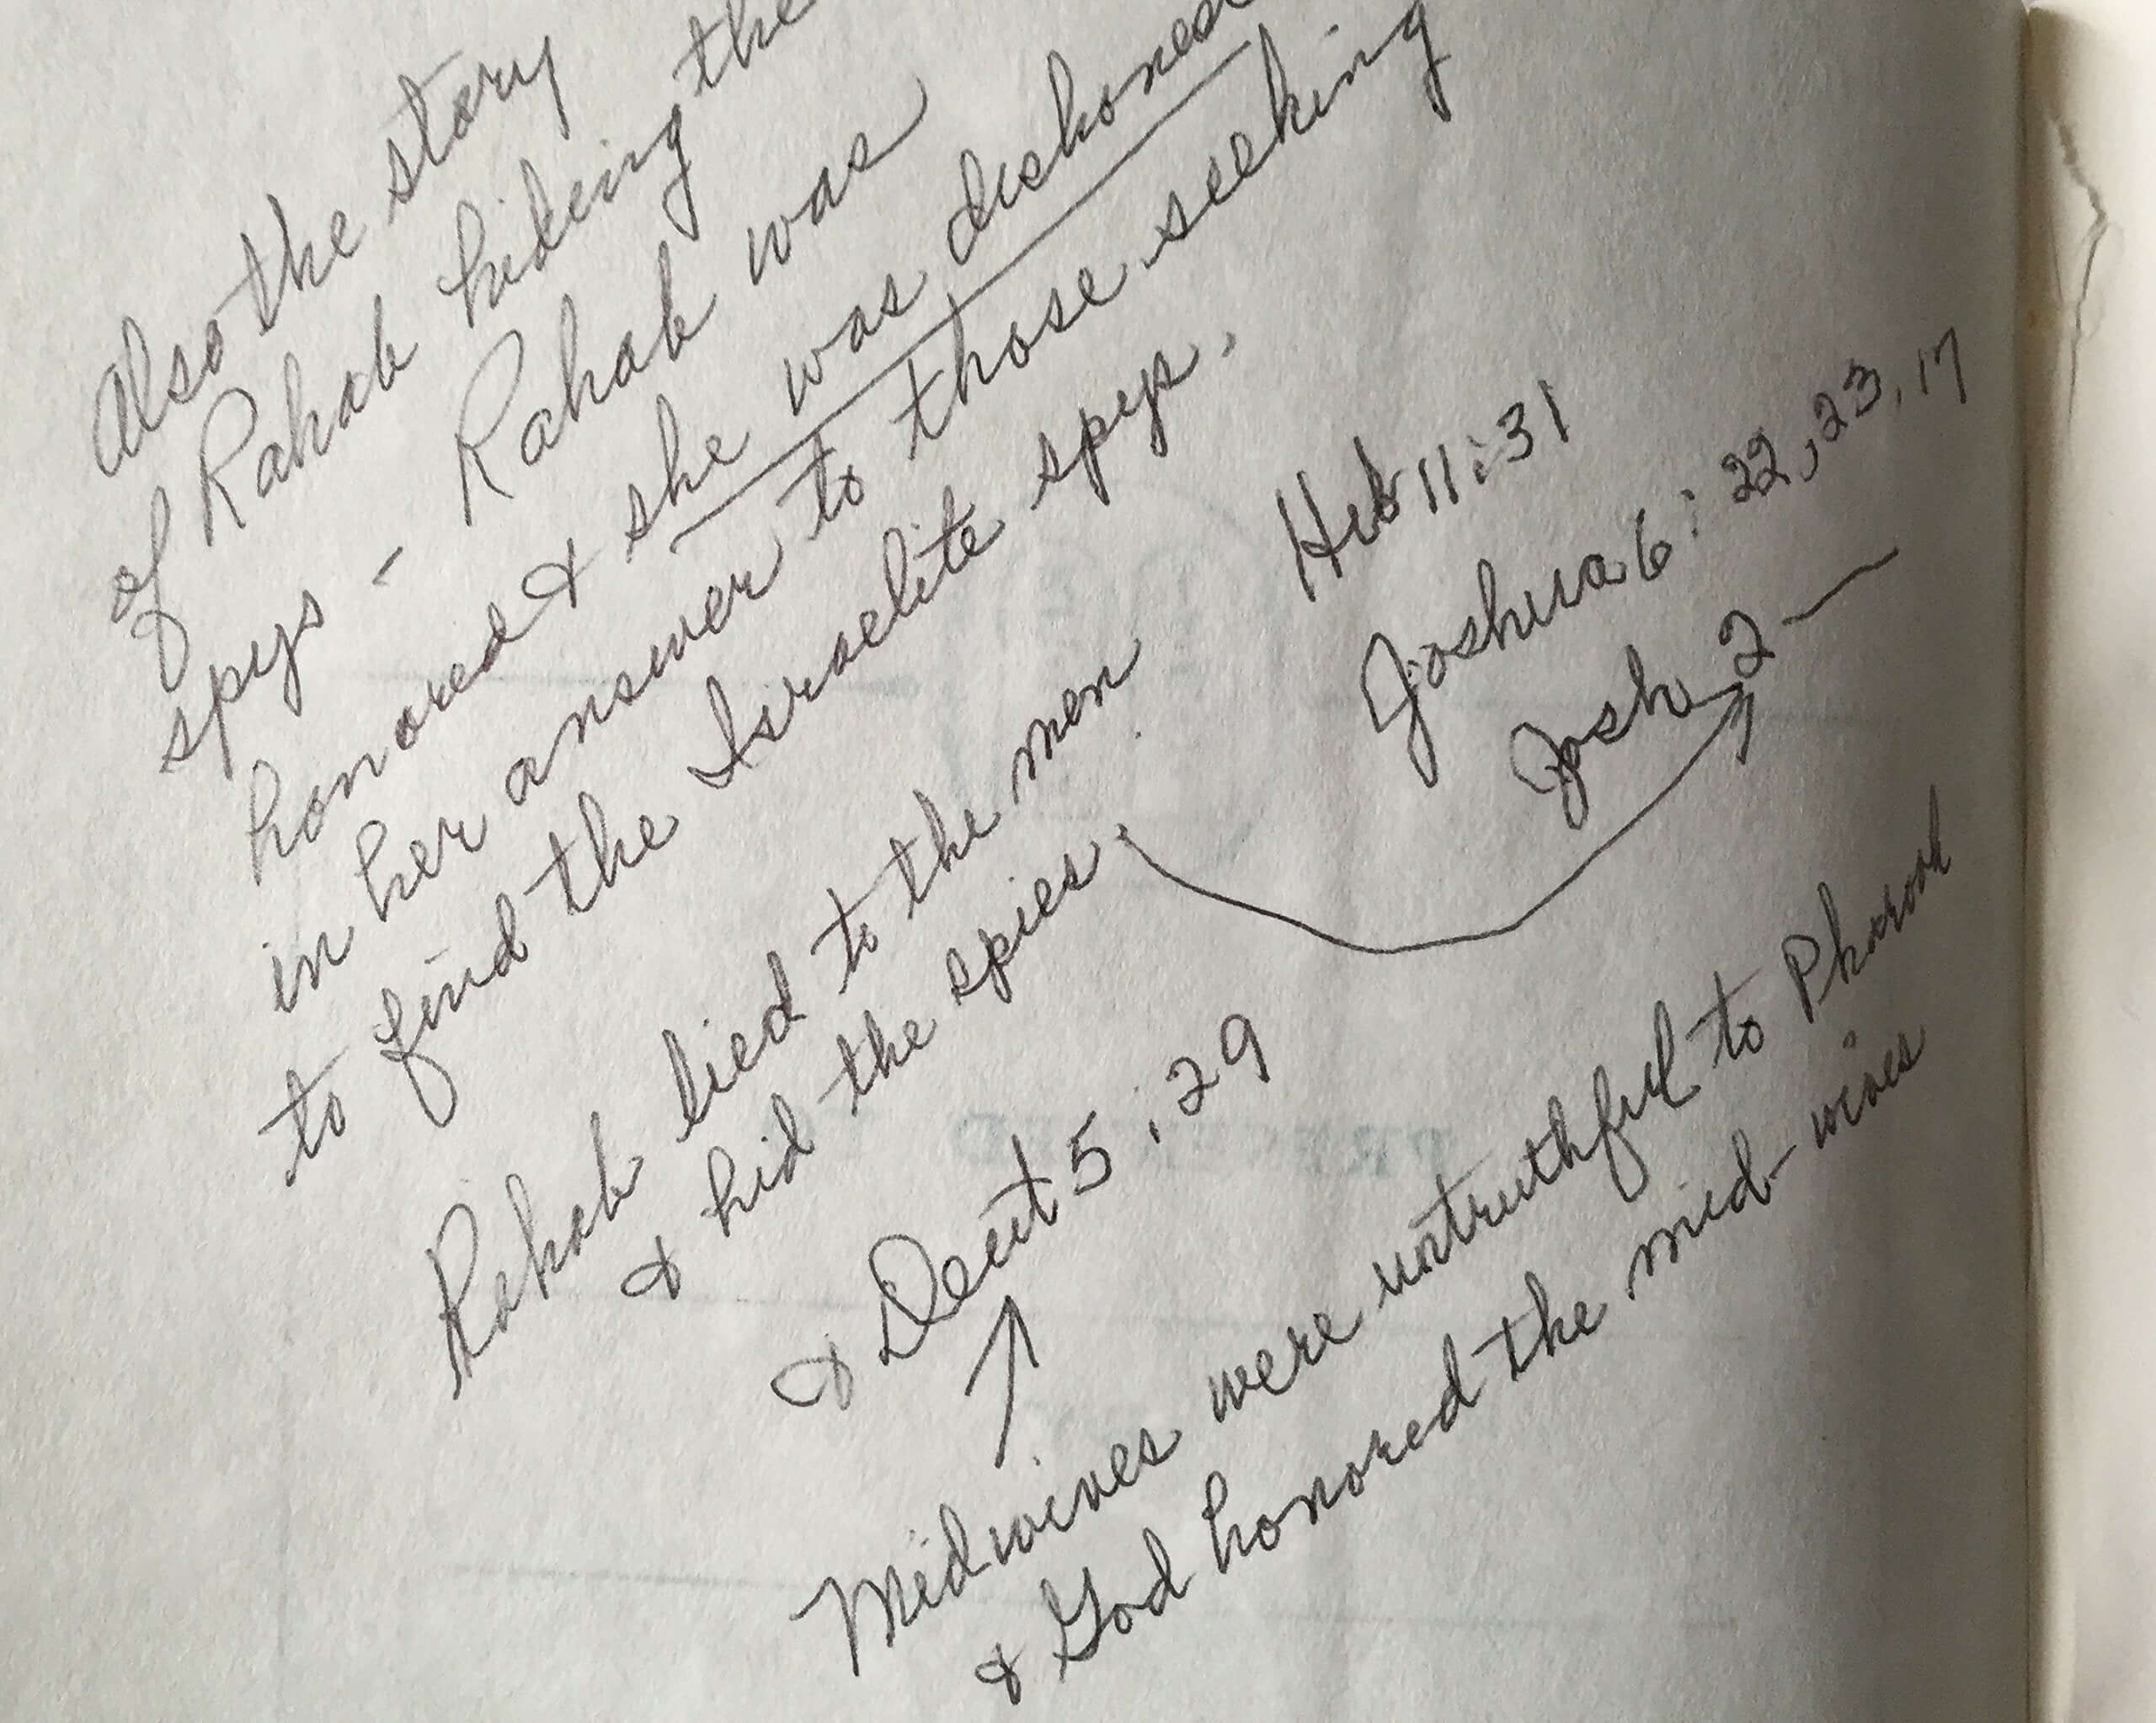 Also the story
of Rahab hiding the
spys - Rahab was
honored & she was dishones
in her answer to those seeking
to find the Israelite spys.
Heb 11:31
Joshua 6:22,23,17
Josh 2 —
Rahab lied to the men
& hid the spies.
& Deut 5:29
Midwives were untruthful to Pharoah
& God honored the mid-wives